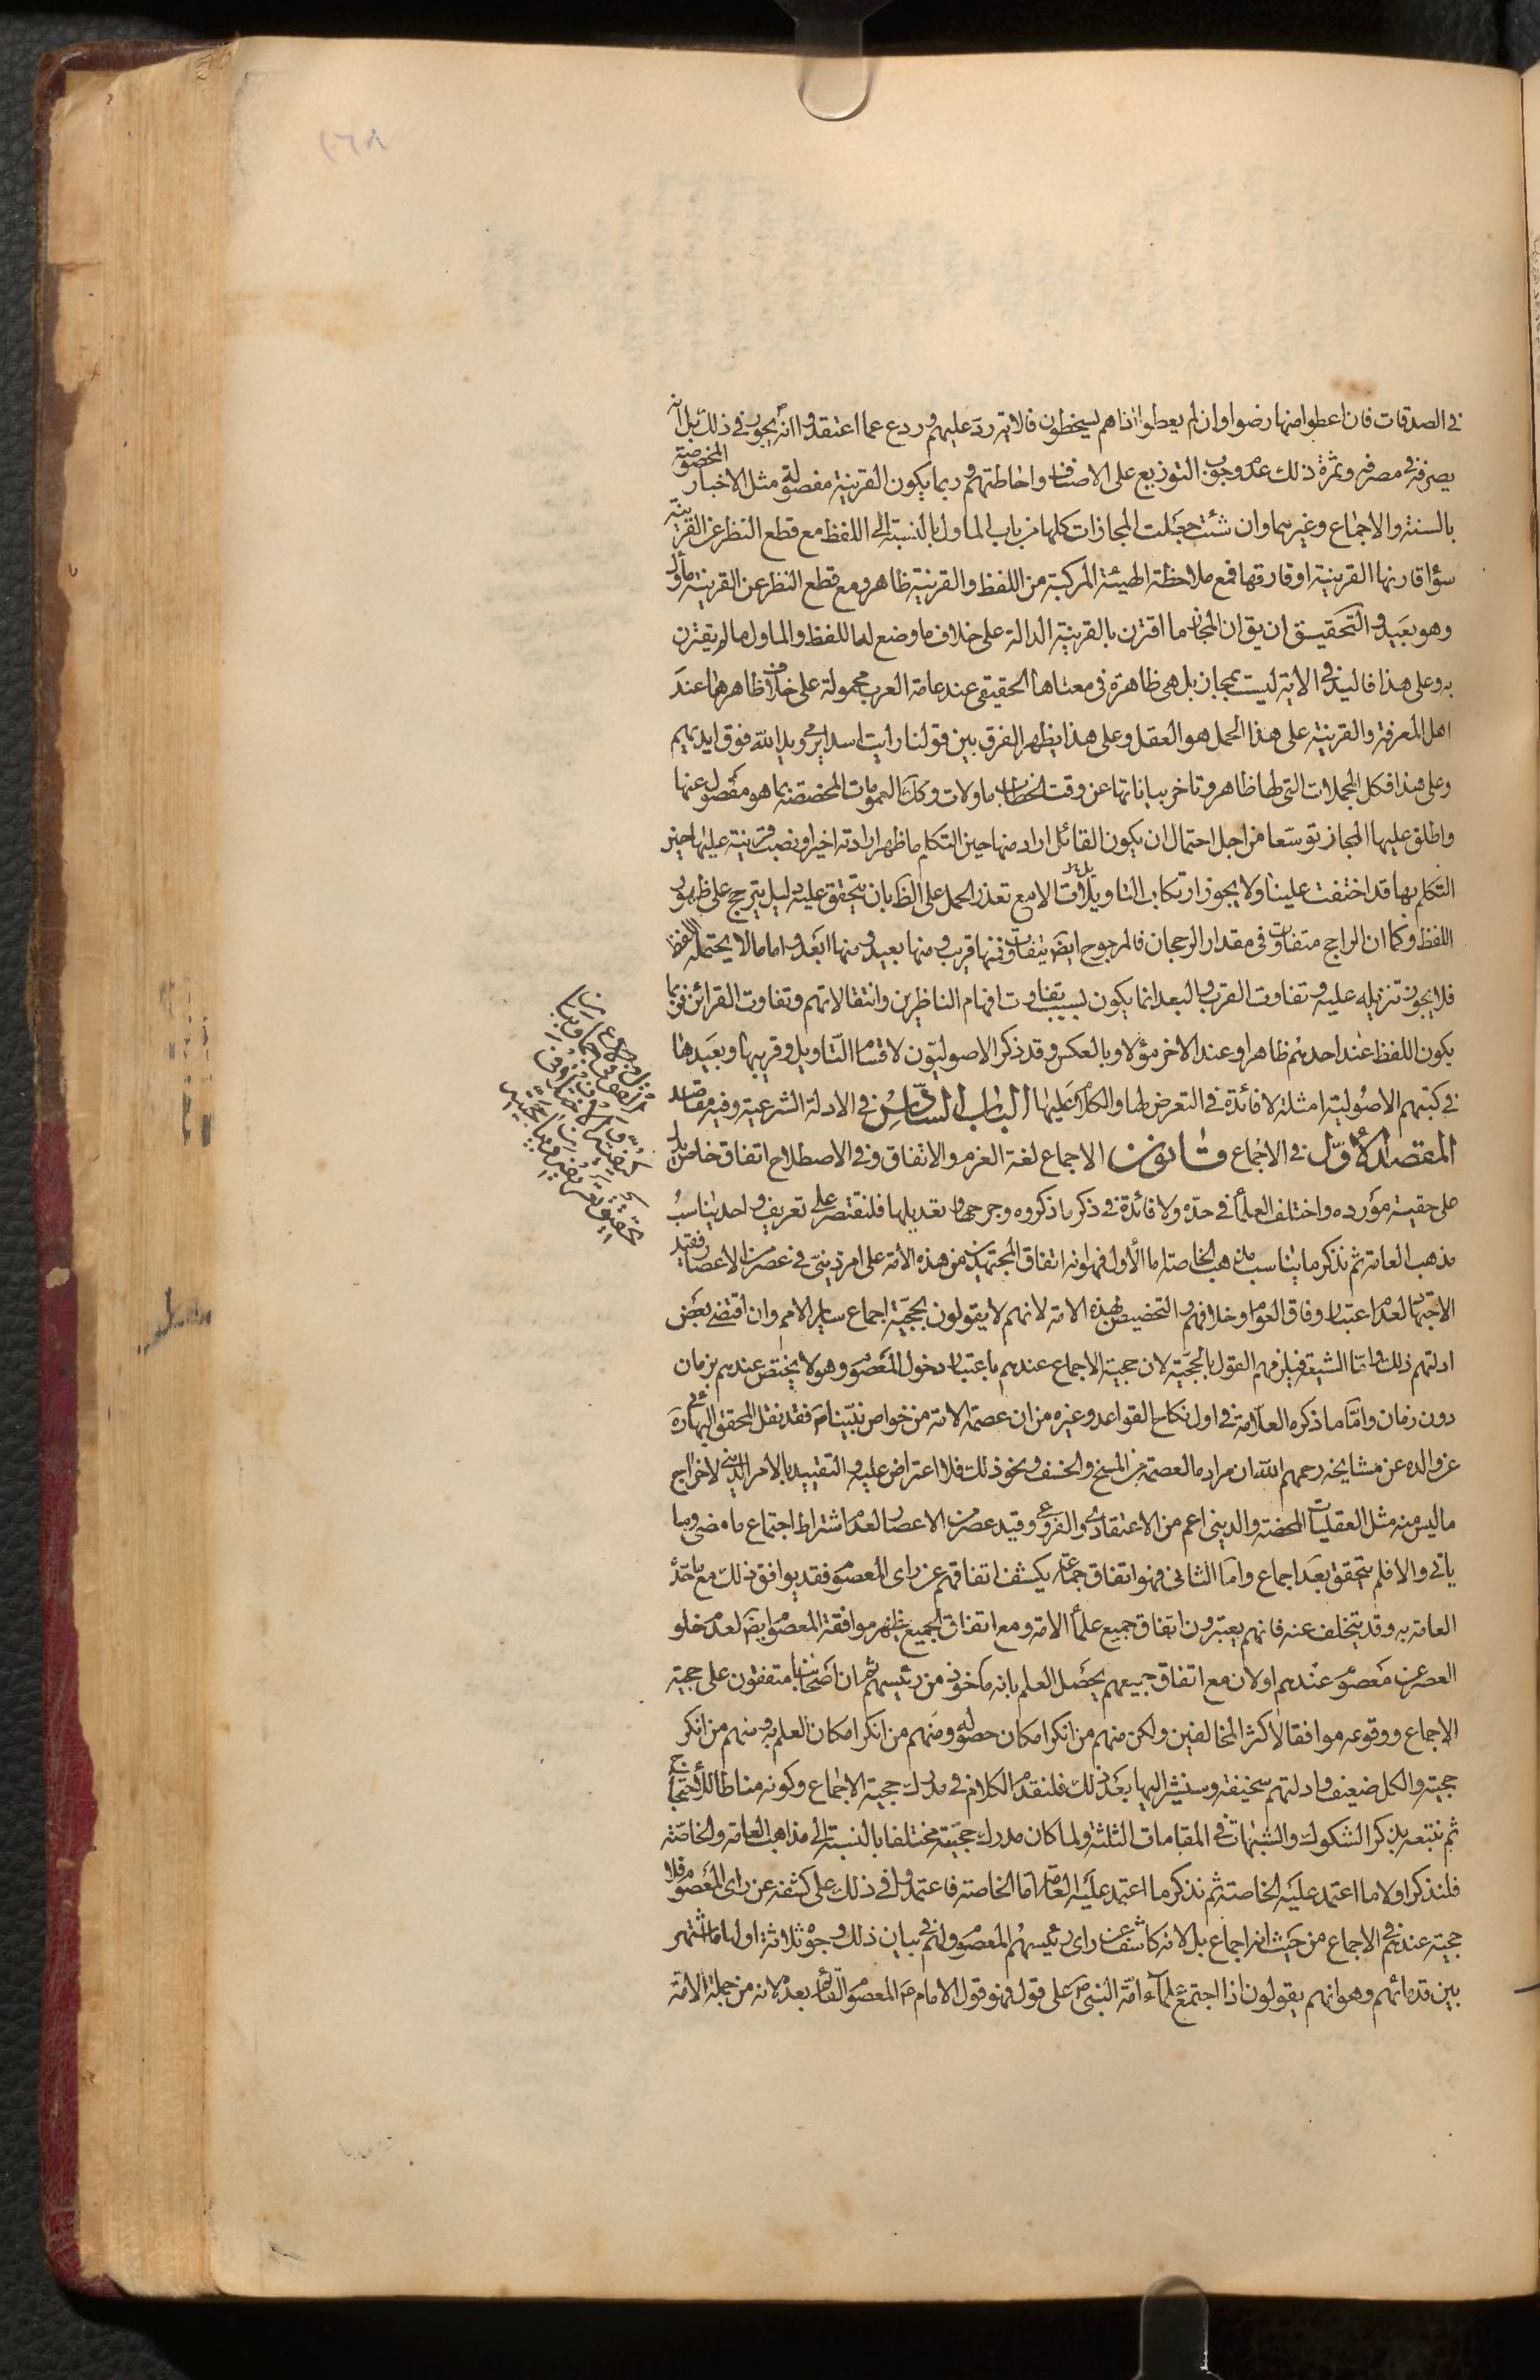 في الصدقات فان اعطوا منها رضوا وان لم يعطوا اذا هم يسخطون فالاية رد عليهم وردع عما اعتقدوا انه ص يجور في ذلك بل انه
يصرفه في مصرفه وثمرة ذلك عدم وجوب التوزيع على الاصناف واحاطتهم وربما يكون القرينة مفصولة مثل الاخبار المخصوصة
بالسنة والاجماع وغيرهما وان شئت جعلت المجازات كلها من باب الماول بالنسبة الى اللفظ مع قطع النظر عن القرينة
سواء قارنها القرينة او فارقها فمع ملاحظة الهيئة المركبة من اللفظ والقرينة ظاهر ومع قطع النظر عن القرينة مأول
وهو بعيد والتحقيق ان يق ان المجاز ما اقترن بالقرينة الدالة على خلاف ما وضع له اللفظ والماول ما لم يقترن
به وعلى هذا فاليد في الاية ليست بمجاز بل هي ظاهرة في معناها الحقيقي عند عامة العرب محمولة على خلاف ظاهرها عند
اهل المعرفة والقرينة على هذا الحمل هو العقل وعلى هذا يظهر الفرق بين قولنا رايت اسدا يرمي ويد الله فوق ايديهم
وعلى هذا فكل المجملات التي لها ظاهر وتاخر بياناتها عن وقت الخطاب ماولات وكك العمومات المخصصة بما هو مفصول عنها
واطلق عليها المجاز توسعا من اجل احتمال ان يكون القائل اراد منها حين التكلم ما ظهر ارادته اخيرا ونصب قرينة عليها حين
التكلم بها قد اختفت علينا ولا يجوز ارتكاب التاويلات الا مع تعذر الحمل على الظ بان يتحقق عليه دليل يترجح على ظهور
اللفظ وكما ان الراجح متفاوت في مقدار الرجحان فالمرجوح ايض يتفاوت فمنها قريب ومنها بعيد ومنها ابعد واما ما لا يحتمله اللفظ
فلا يجوز تنزيله عليه وتفاوت القرب والبعد انما يكون بسبب تفاوت افهام الناظرين وانتقالاتهم وتفاوت القرائن فربما
يكون اللفظ عند احدهم ظاهرا وعند الاخر مؤلا وبالعكس وقد ذكر الاصوليون لاقسام التاويل وقريبها وبعيدها
في كتبهم الاصولية امثلة لا فائدة في التعرض لها والكلام عليها الباب السادس في الادلة الشرعية وفيه مقاصد
المقصد الاول في الاجماع قانون الاجماع لغة العزم والاتفاق وفي الاصطلاح اتفاق خاص يدل
على حقية مورده واختلف العلماء في حده ولا فائدة في ذكر ما ذكروه وجرحها وتعديلها فلنقتصر على تعريف واحد يناسب
مذهب العامة ثم نذكر ما يناسب مذهب الخاصة اما الاول فهو انه اتفاق المجتهدين من هذه الامة على امر ديني في عصر من الاعصار فقيد
الاجتهاد لعدم اعتبار وفاق العوام وخلافهم والتخصيص بهذه الامة لانهم لا يقولون بحجية اجماع ساير الامم وان اقتضى بعض
ادلتهم ذلك واما الشيعة فيلزمهم القول بالحجية لان حجية الاجماع عندهم باعتبار دخول المعصوم وهو لا يختص عندهم بزمان
دون زمان واما ما ذكره العلامة في اول نكاح القواعد وغيره من ان عصمة الامة من خواص نبينا ص فقد نقل المحقق البهائي ره
عن والده عن مشايخه رحمهم الله ان مراده العصمة من المسخ والخسف ونحو ذلك فلا اعتراض عليه والتقييد بالامر الديني لاخراج
ما ليس منه مثل العقليات المحضة والديني اعم من الاعتقادي والفروعي وقيد عصر من الاعصار لعدم اشتراط اجتماع ما مضى وما
ياتي والا فلم يتحقق بعد اجماع واما الثاني فهو اتفاق جماعة يكشف اتفاقهم عن راى المعصوم فقد يوافق ذلك مع ما حده
العامة به وقد يتخلف عنه فانهم يعتبرون اتفاق جميع علماء الامة ومع اتفاق الجميع يظهر موافقة المعصوم ايض لعدم خلو
العصر عن معصوم عندهم او لان مع اتفاق جميعهم يحصل العلم بانه ماخوذ من رئيسهم ثم ان اصحابنا متفقون على حجية
الاجماع ووقوعه موافقا لاكثر المخالفين ولكن منهم من انكر امكان حصوله ومنهم من انكر امكان العلم به ومنهم من انكر
حجيته والكل ضعيف وادلتهم سخيفة وسنشير اليها بعد ذلك فلنقدم الكلام في مدرك حجية الاجماع وكونه مناطا للاحتجاج
ثم نتبعه بذكر الشكوك والشبهات في المقامات الثلثة ولما كان مدرك حجيته مختلفا بالنسبة الى مذاهب العامة والخاصة
فلنذكر اولا ما اعتمد عليه الخاصة ثم نذكر ما اعتمد عليه العامة اما الخاصة فاعتمدوا في ذلك على كشفه عن راى المعصوم فلا
حجية عندهم في الاجماع من حيث انه اجماع بل لانه كاشف عن راى رئيسهم المعصوم ولهم في بيان ذلك وجوه ثلاثة اولها ما اشتهر
بين قدمائهم وهو انهم يقولون اذا اجتمع علماء امة النبي ص على قول فهو قول الامام ع المعصوم القائم بعده لانه من جملة الامة